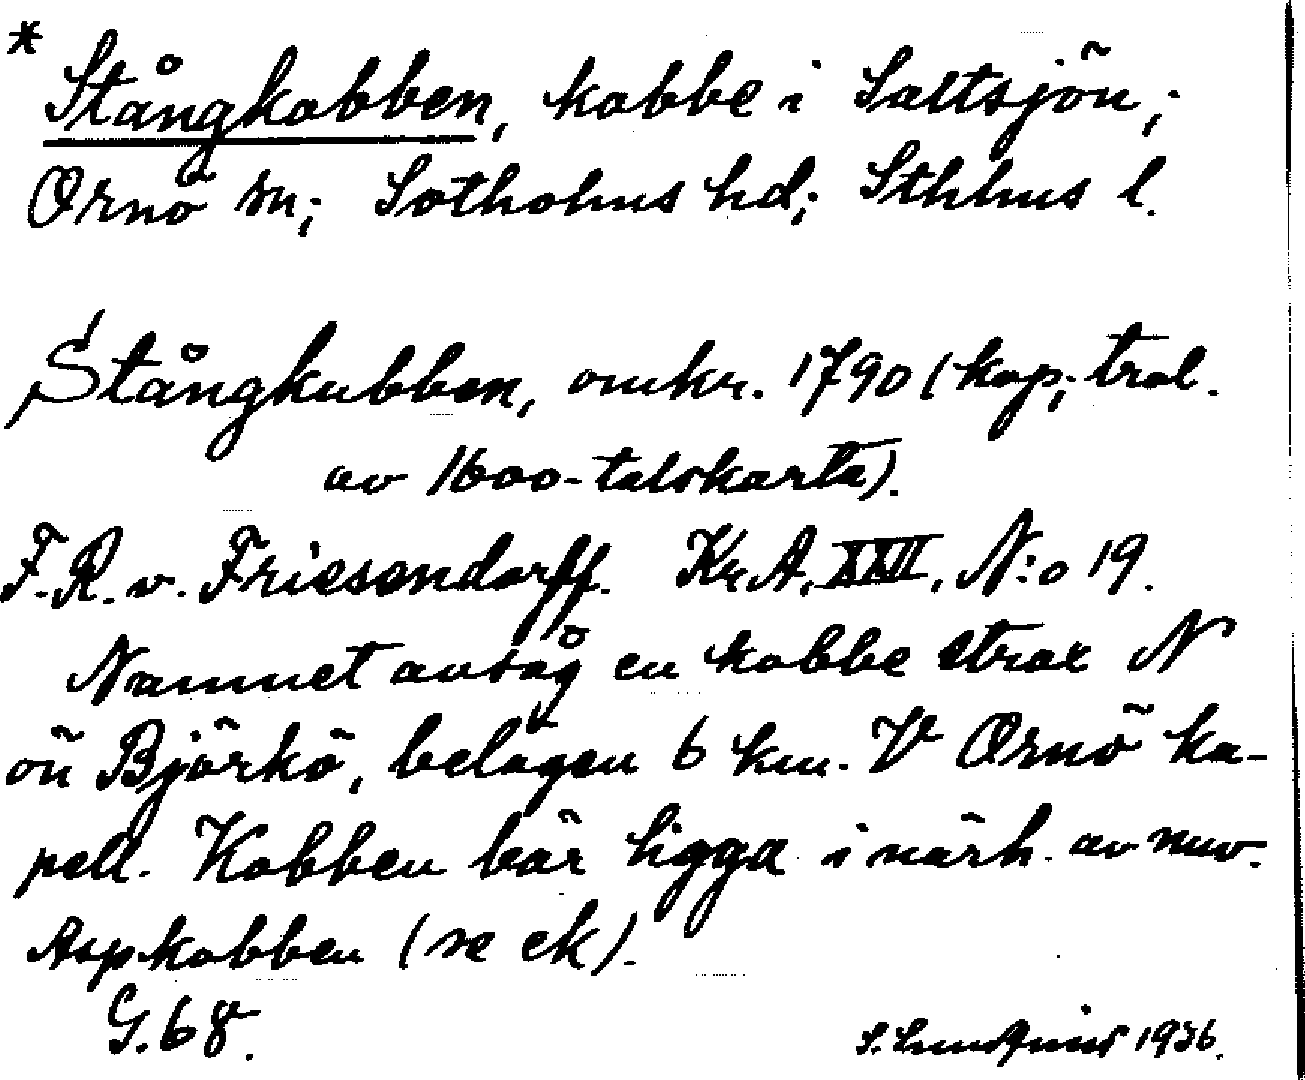 * Stångkobben, kobbe i Saltsjön;
Ornö sn; Sotholms hd; Sthlms l.
Stångkubben, omkr. 1790 (kop; trol.
av 1600-talskarta).
F.R. v. Friesendorff. Kr.A. XXII, N:o 19.
Namnet avsåg en kobbe strax N
ön Björkö, belägen 6 km. V Ornö ka-
pell. Kobben bör ligga i närh. av nuv.
Aspkobben (se ek).
G.68.
S. Lundquist 1936.